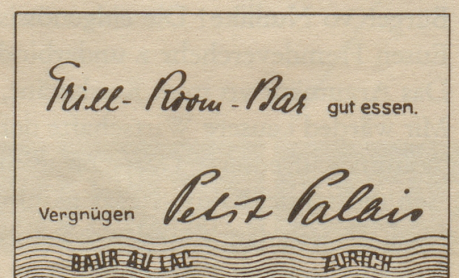 Grill-Room-Bar gut essen.
Vergnügen Petit Palais
BAUR AU LAC ZURICH